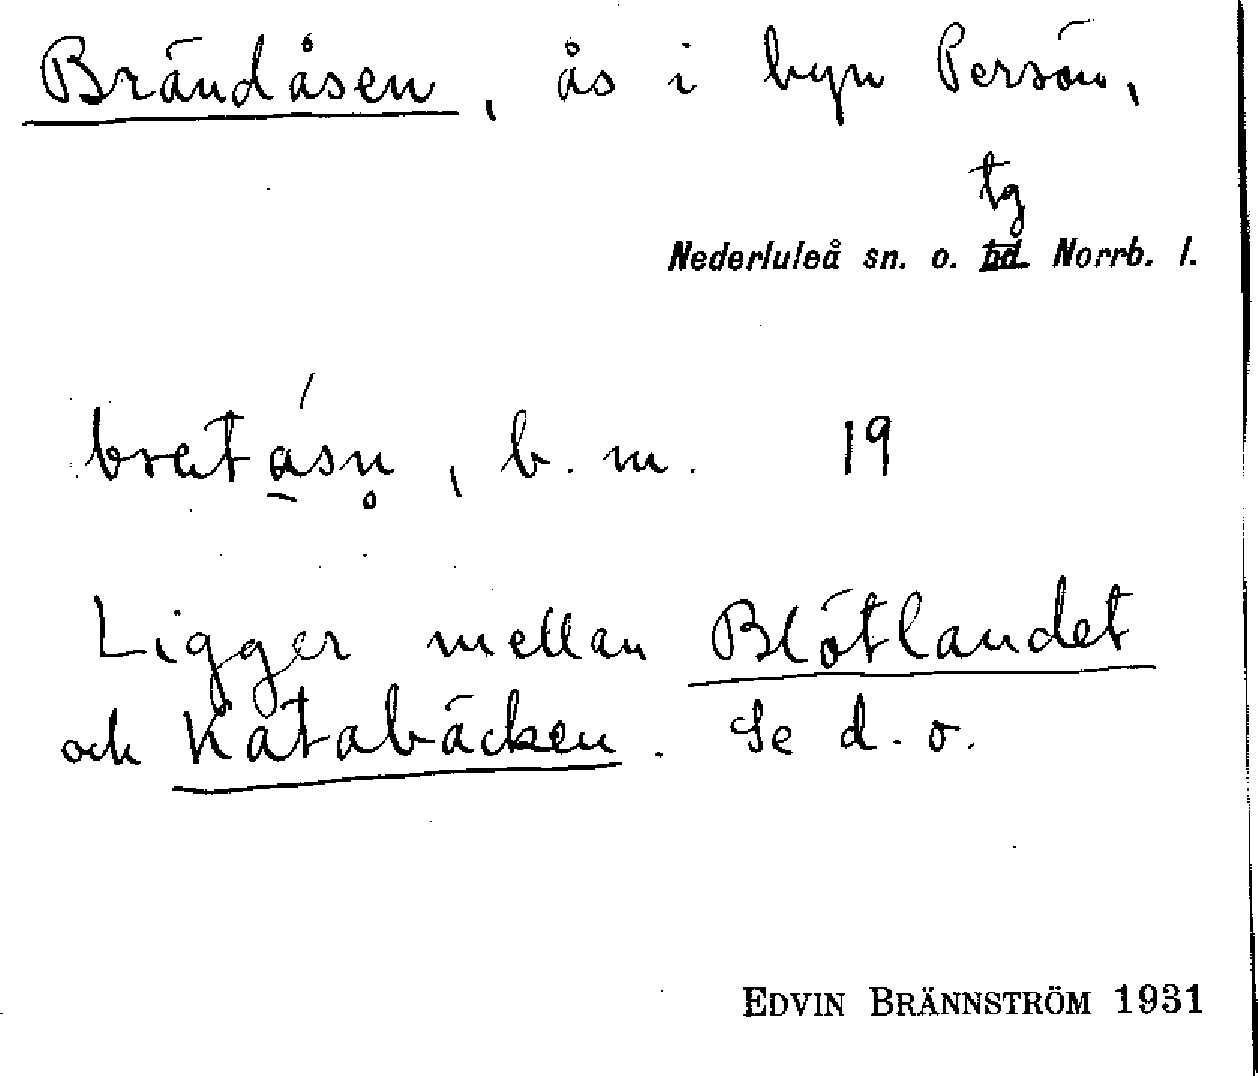 Brändåsen, ås i byn Persön,
tg
Nederluleå sn. o. hd Norrb. l.
bratásn̥, b. m. 19
Ligger mellan Blötlandet
och Kåtabäcken. Se d. o.
EDVIN BRÄNNSTRÖM 1931